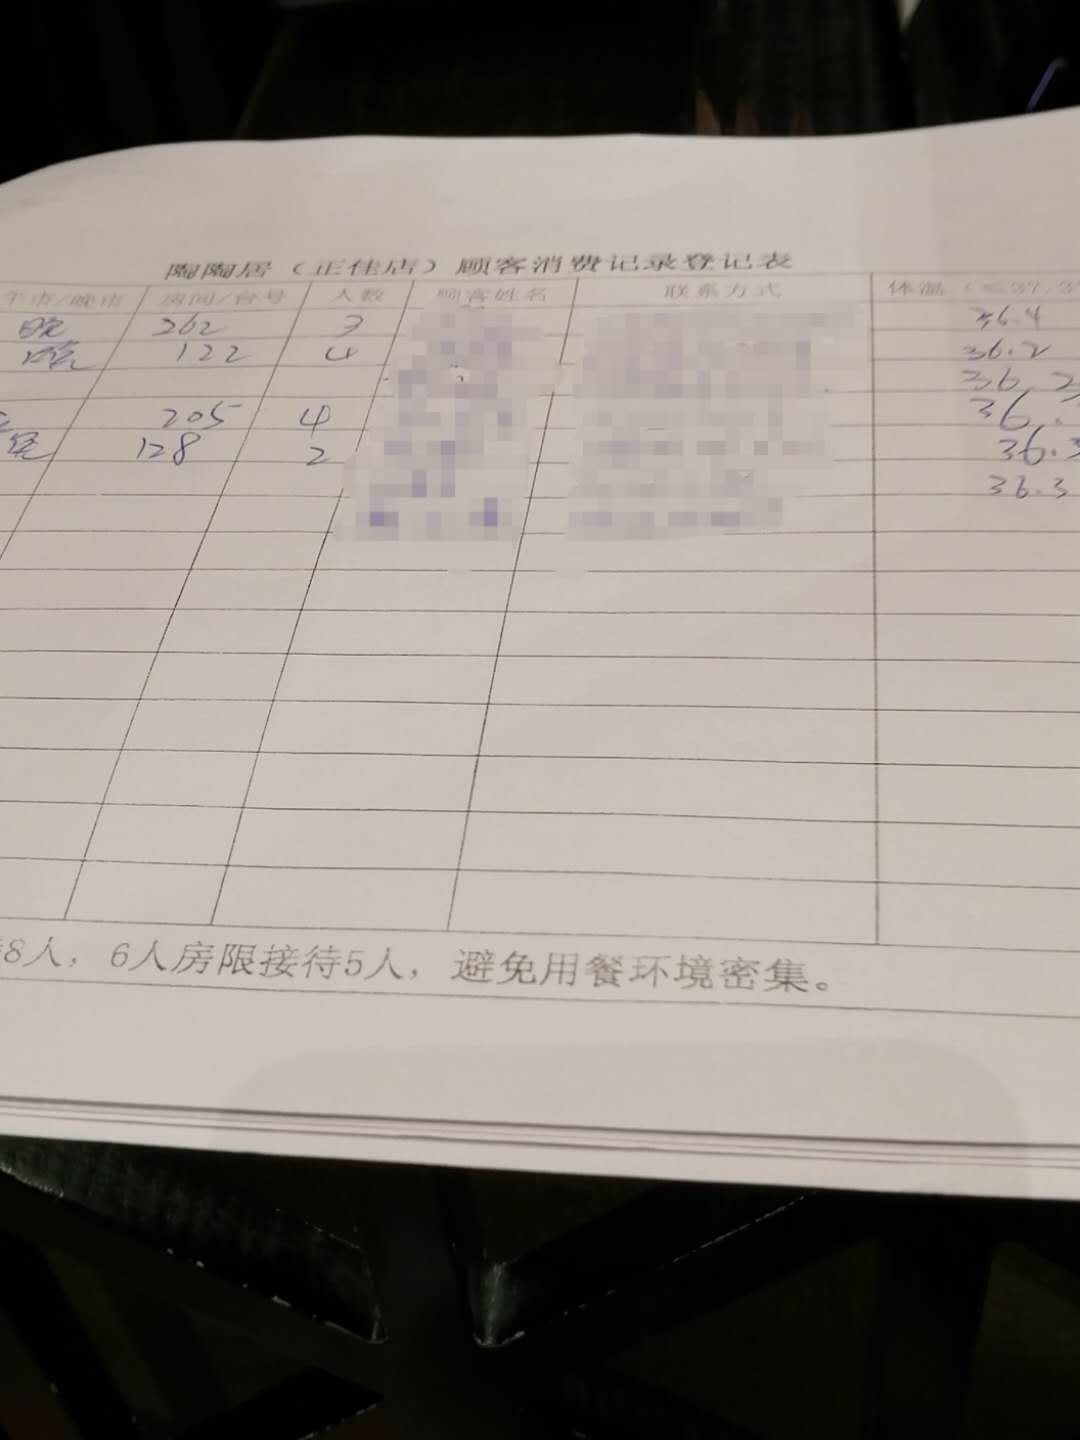 陶陶居（正佳店）顾客消费记录登记表
午市/晚市 房间/台号 人数 顾客姓名 联系方式 体温（≤37.3
晚 262 3 36.4
晚 122 4 36.2
36.2
205 4 36.
晚 128 2 36.3
36.3
8人，6人房限接待5人，避免用餐环境密集。